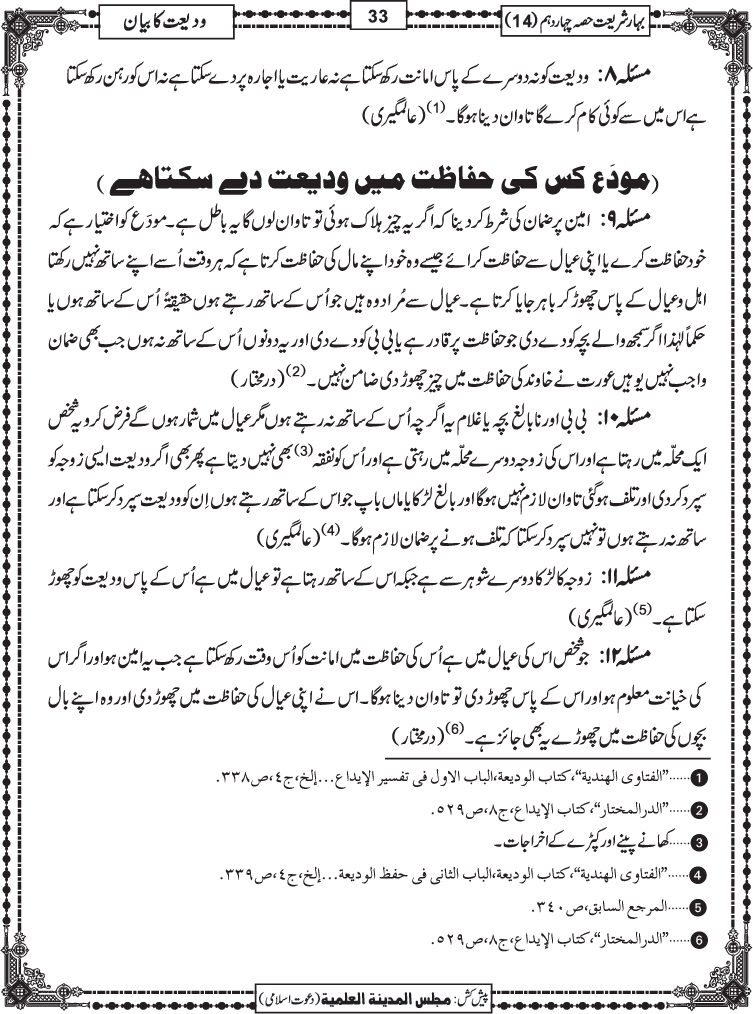 بہار شریعت حصہ چہاردہم (14)
33
ودیعت کا بیان
مسئلہ ۸: ودیعت کو نہ دوسرے کے پاس امانت رکھ سکتا ہے نہ عاریت یا اجارہ پر دے سکتا ہے نہ اس کو رہن رکھ سکتا
ہے اس میں سے کوئی کام کرے گا تاوان دینا ہوگا۔(1) (عالمگیری)
(مودَع کس کی حفاظت میں ودیعت دے سکتاہے)
مسئلہ ۹: امین پر ضمان کی شرط کر دینا کہ اگر یہ چیز ہلاک ہوئی تو تاوان لوں گا یہ باطل ہے۔ مودَع کو اختیار ہے کہ
خود حفاظت کرے یا اپنی عیال سے حفاظت کرائے جیسے وہ خود اپنے مال کی حفاظت کرتا ہے کہ ہر وقت اُسے اپنے ساتھ نہیں رکھتا
اہل و عیال کے پاس چھوڑ کر باہر جایا کرتا ہے۔ عیال سے مُراد وہ ہیں جو اُس کے ساتھ رہتے ہوں حقیقۃً اُس کے ساتھ ہوں یا
حکماً لہٰذا اگر سمجھ والے بچہ کو دے دی جو حفاظت پر قادر ہے یا بی بی کو دے دی اور یہ دونوں اُس کے ساتھ نہ ہوں جب بھی ضمان
واجب نہیں یوہیں عورت نے خاوند کی حفاظت میں چیز چھوڑ دی ضامن نہیں۔(2) (درمختار)
مسئلہ ۱۰: بی بی اور نابالغ بچہ یا غلام یہ اگرچہ اُس کے ساتھ نہ رہتے ہوں مگر عیال میں شمار ہوں گے فرض کرو یہ شخص
ایک محلّہ میں رہتا ہے اور اس کی زوجہ دوسرے محلّہ میں رہتی ہے اور اُس کو نفقہ(3) بھی نہیں دیتا ہے پھر بھی اگر ودیعت ایسی زوجہ کو
سپرد کر دی اور تلف ہو گئی تاوان لازم نہیں ہوگا اور بالغ لڑکا یا ماں باپ جو اس کے ساتھ رہتے ہوں اِن کو ودیعت سپرد کر سکتا ہے اور
ساتھ نہ رہتے ہوں تو نہیں سپرد کر سکتا کہ تلف ہونے پر ضمان لازم ہوگا۔(4) (عالمگیری)
مسئلہ ۱۱: زوجہ کا لڑکا دوسرے شوہر سے ہے جبکہ اس کے ساتھ رہتا ہے تو عیال میں ہے اُس کے پاس ودیعت کو چھوڑ
سکتا ہے۔(5) (عالمگیری)
مسئلہ ۱۲: جو شخص اس کی عیال میں ہے اُس کی حفاظت میں امانت کو اُس وقت رکھ سکتا ہے جب یہ امین ہو اور اگر اس
کی خیانت معلوم ہو اور اس کے پاس چھوڑ دی تو تاوان دینا ہوگا۔ اس نے اپنی عیال کی حفاظت میں چھوڑ دی اور وہ اپنے بال
بچوں کی حفاظت میں چھوڑے یہ بھی جائز ہے۔(6) (درمختار)
1......"الفتاوی الهندية"، كتاب الوديعة، الباب الاول فی تفسير الإيداع...إلخ، ج٤، ص٣٣٨.
2......"الدرالمختار"، كتاب الإيداع، ج٨، ص٥٢٩.
3......کھانے پینے اور کپڑے کے اخراجات۔
4......"الفتاوی الهندية"، كتاب الوديعة، الباب الثانی فی حفظ الوديعة...إلخ، ج٤، ص٣٣٩.
5......المرجع السابق، ص٣٤٠.
6......"الدرالمختار"، كتاب الإيداع، ج٨، ص٥٢٩.
پیش کش: مجلس المدينة العلمية (دعوت اسلامی)